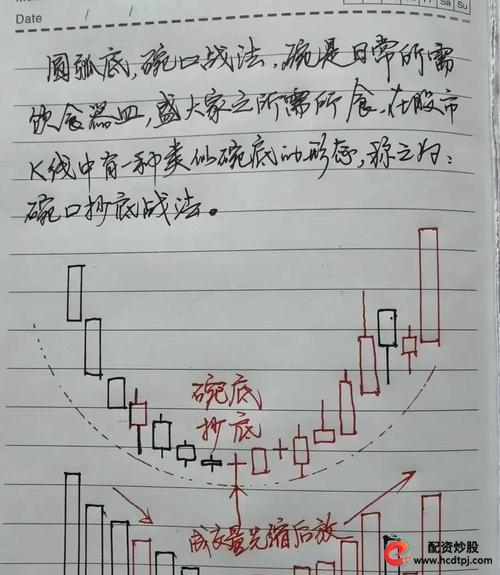 Date / /
Sa Su
圆弧底,碗口战法,碗是日常所需
饮食器皿,盛大家之所需所食,在股市
K线中有一种类似碗底的形态,称之为:
碗口抄底战法。
碗底
抄底
成交量先缩后放
配资炒股
www.hcdtpj.com